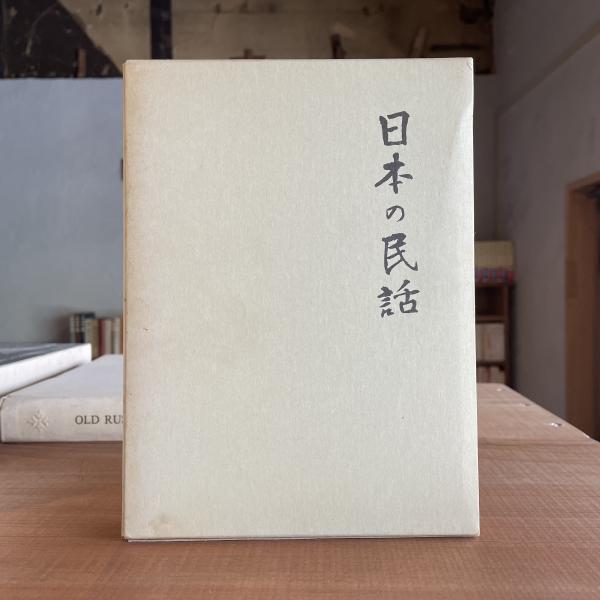 日本の民話
OLD RUS